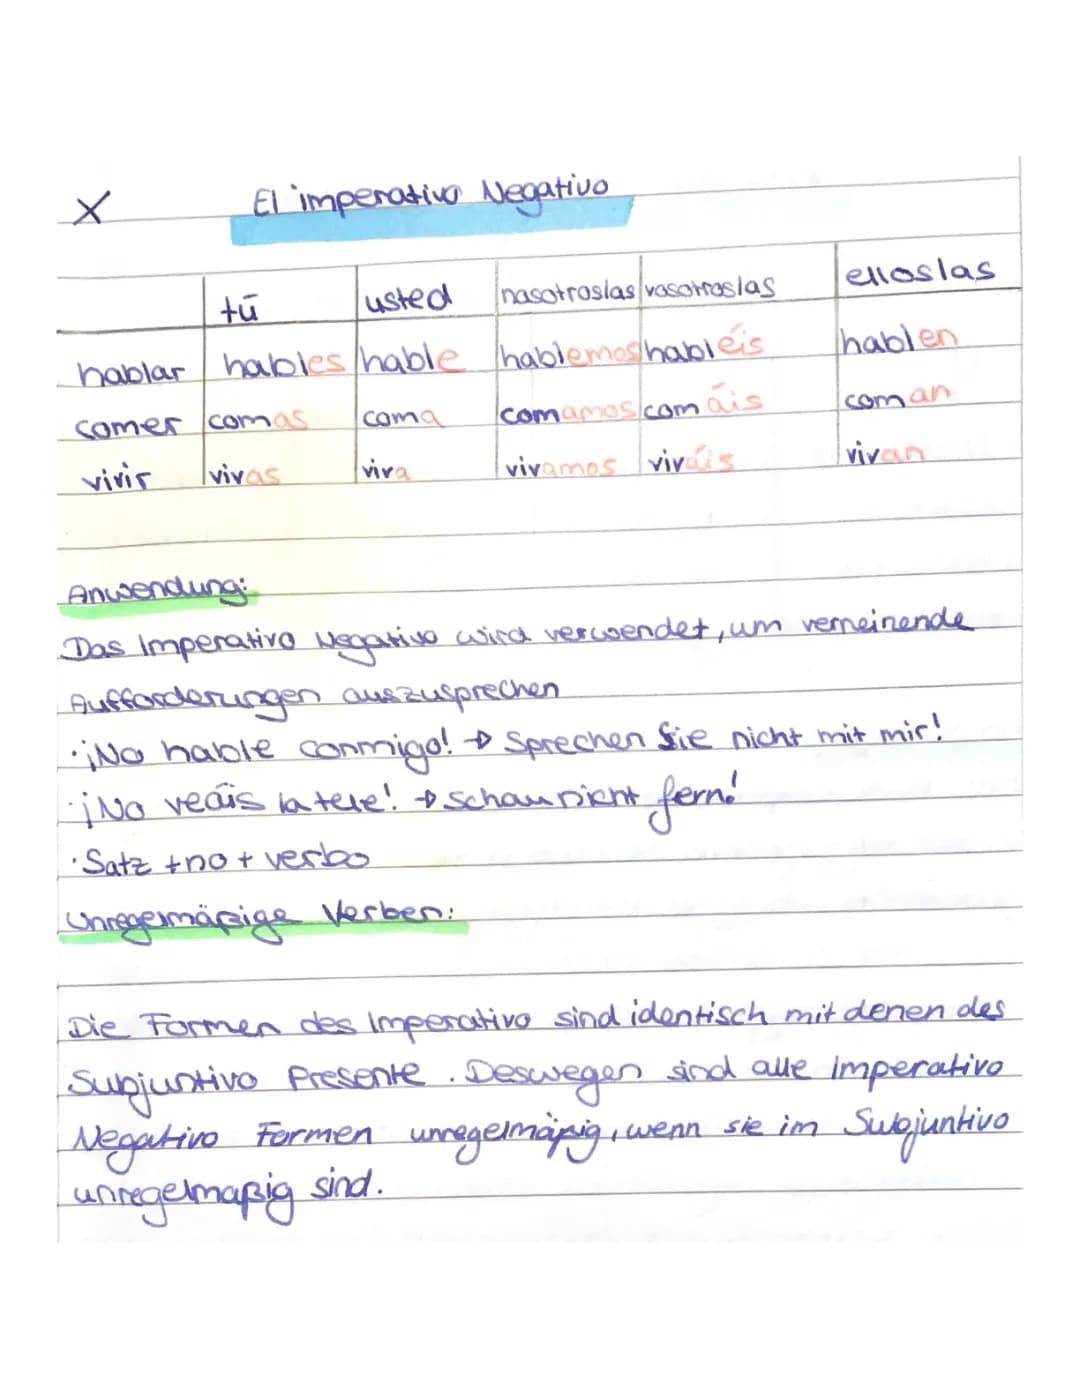 X El imperativo Negativo
tú usted nosotros/as vosotros/as ellos/as
hablar hables hable hablemos habléis hablen
comer comas coma comamos comáis coman
vivir vivas viva vivamos viváis vivan
Anwendung:
Das Imperativo Negativo wird verwendet, um verneinende
Aufforderungen auszusprechen
·¡No hable conmigo! → Sprechen Sie nicht mit mir!
·¡No veáis la tele! → Schau nicht fern!
·Satz + no + verbo
Unregelmäßige Verben:
Die Formen des Imperativo sind identisch mit denen des
Subjuntivo Presente. Deswegen sind alle Imperativo
Negativo Formen unregelmäßig, wenn sie im Subjuntivo
unregelmaßig sind.